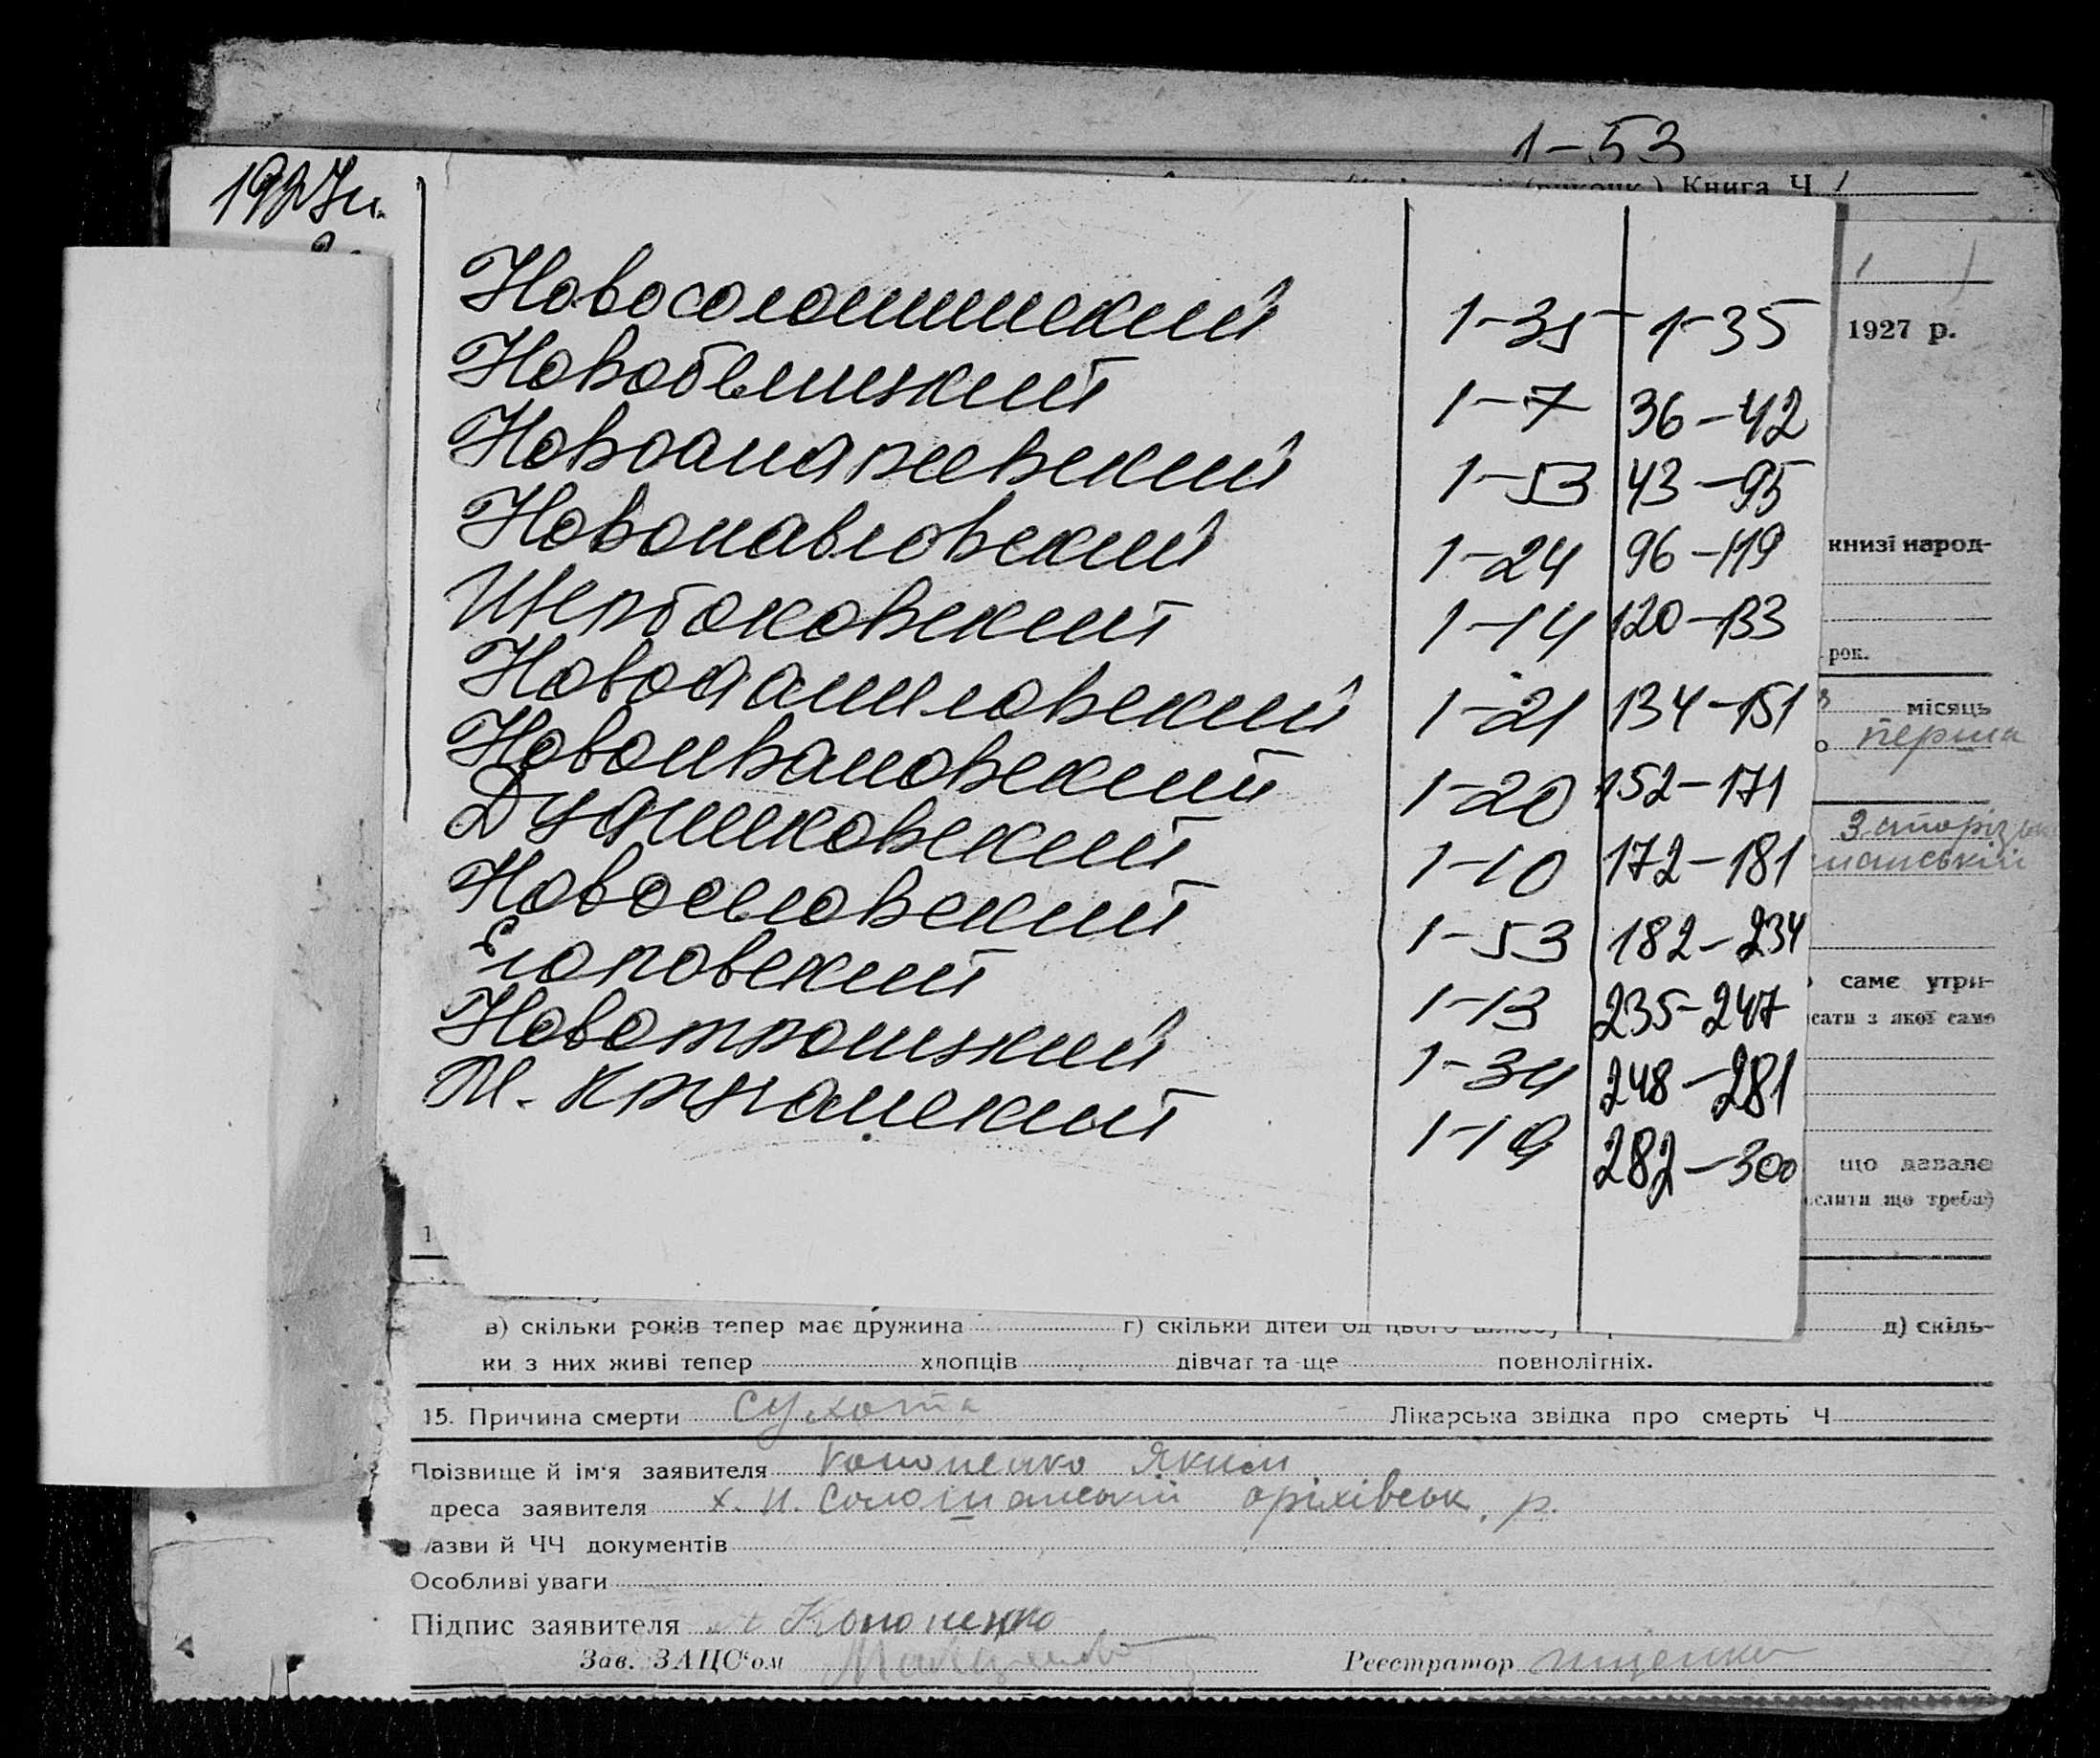 1-53
Книга Ч. 1
1927 р.
Новосолошинский 1-35 1-35
Новобелицкий 1-7 36-42
Новоандреевский 1-53 43-95
Новопавловский 1-24 96-119
книзі народ-
Щербаковский 1-14 120-133
рок.
Новоданиловский 1-21 134-151
місяць
перша
Новоивановский 1-20 152-171
Дудниковский 1-10 172-181
Запорізьк
Новоселовский 1-53 182-234
саме утри-
Егоровский 1-13 235-247
сати з якої само
Новотроицкий 1-34 248-281
М. 1-19 282-300
що давало
що треба)
в) скільки років тепер має дружина г) скільки дітей од цього д) скіль-
ки з них живі тепер хлопців дівчат та ще повнолітніх.
15. Причина смерти сухота Лікарська звідка про смерть Ч
Прізвище й ім'я заявителя Кононенко Яким
дреса заявителя х. Н. Солошанській оріхівськ. р.
азви й ЧЧ документів
Особливі уваги
Підпис заявителя Кононенко
Зав. ЗАЦС'ом Реєстратор